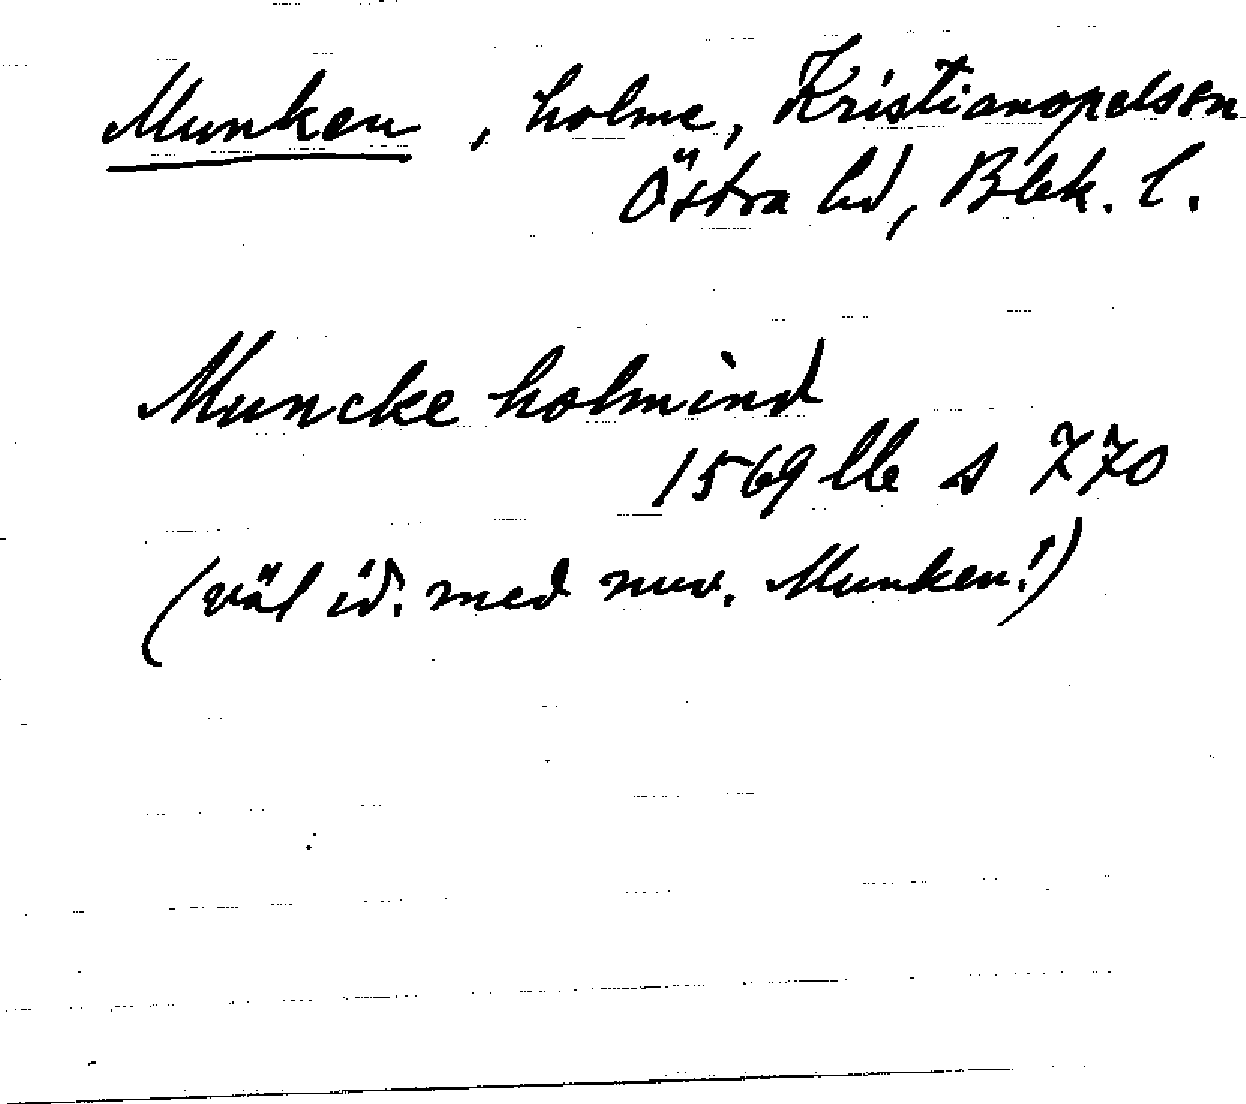 Munken, holme, Kristianopelssn
Östra hd, Blek. l.
Muncke holmind
1569 llb s 770
(väl id. med nuv. Munken!)